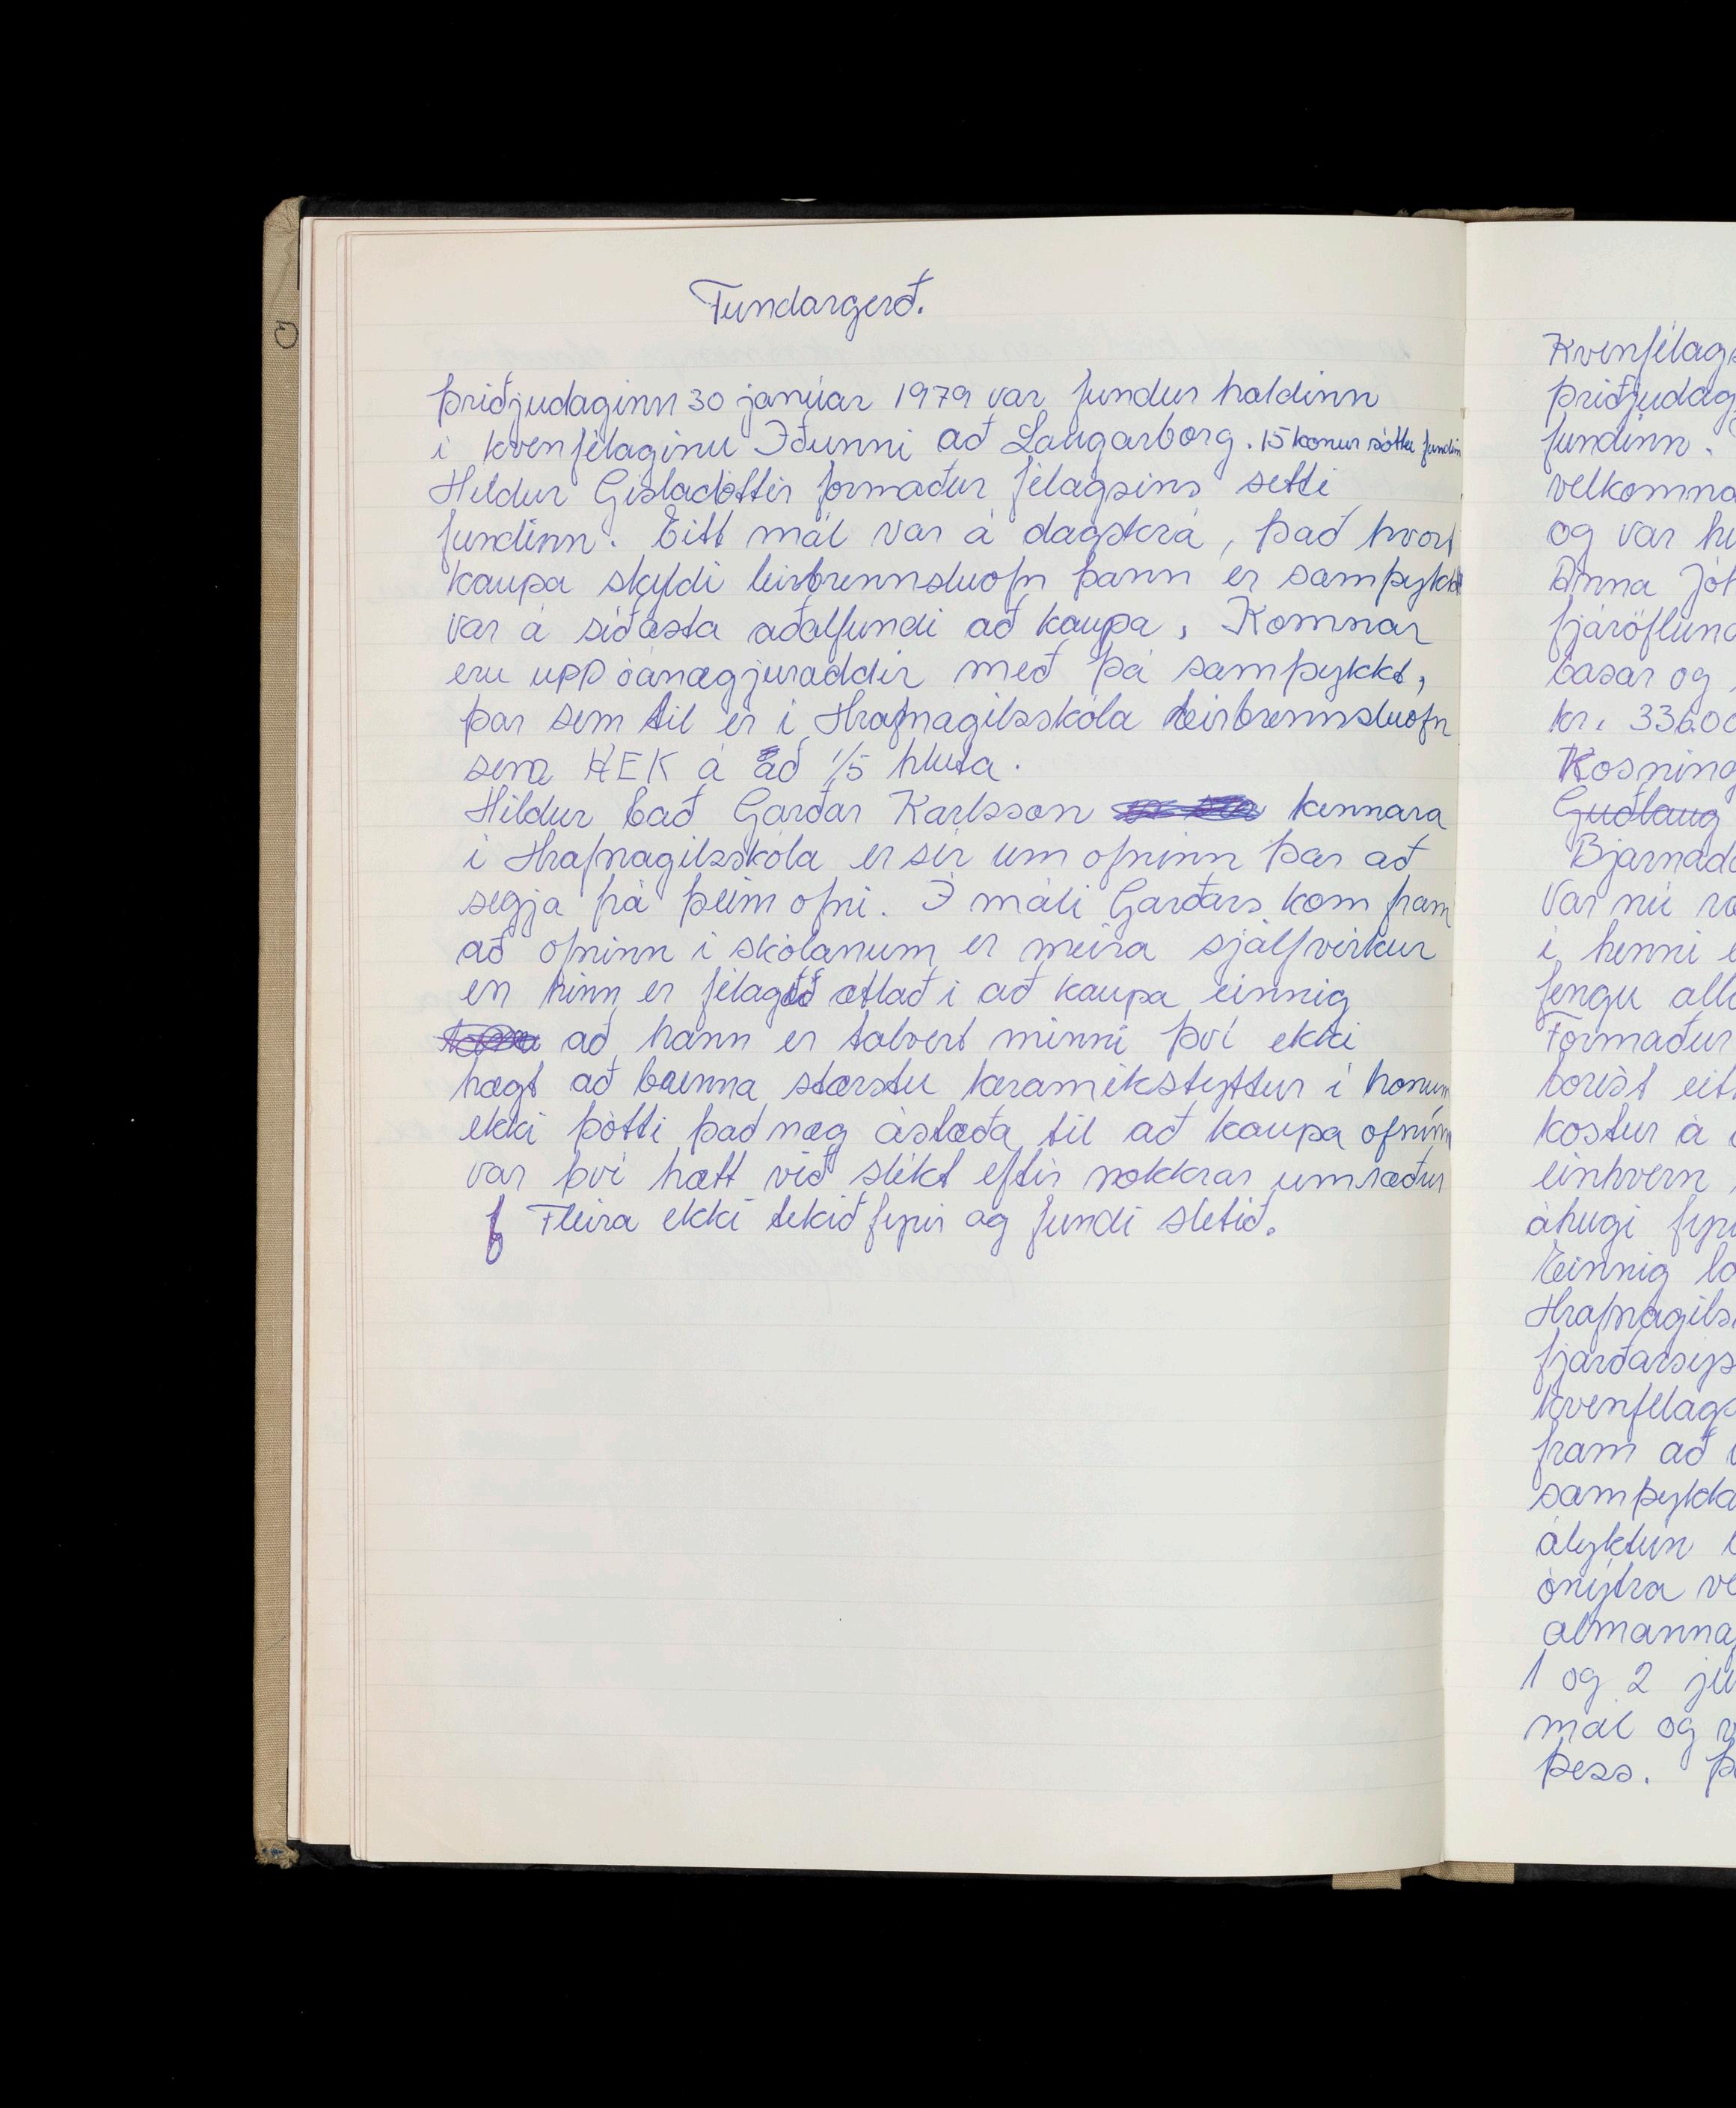 Fundargerð.
Þriðjudaginn 30 janúar 1979 var fundur haldinn
í kvenfélaginu Iðunni að Laugarborg. 15 konur sóttu fundinn
Hildur Gísladóttir formaður félagsins setti
fundinn. Eitt mál var á dagskrá, það hvort
kaupa skyldi leirbrennsluofn þann er samþykkt
var á síðasta aðalfundi að kaupa, Komnar
eru upp óánægjuraddir með þá samþykkt,
þar sem til er í Hrafnagilsskóla leirbrennsluofn
sem HEK á að 1/5 hluta.
Hildur bað Garðar Karlsson kennara
í Hrafnagilsskóla er sér um ofninn þar að
segja frá þeim ofni. Í máli Garðars kom fram
að ofninn í skólanum er meira sjálfvirkur
en hinn er félagið ætlað í að kaupa einnig
að hann er talvert minni því ekki
hægt að brenna stærstu keramikstyttur í honum
ekki þótti það næg ástæða til að kaupa ofninn
var því hætt við slíkt eftir nokkrar umræður
f Fleira ekki tekið fyrir og fundi slitið.
Kvenfélags
Þriðjudag
fundinn.
velkomna
og var hu
Anna Jóh
fjáröflund
basar og
kr. 336.00
Kosning
Guðlaug
Bjarnadó
Var nú ræ
í henni e
fengu alla
Formaður
borist eit
kostur á
einhvern
áhugi fyri
Einnig la
Hrafnagils
fjarðarsýs
kvenfélags
fram að
samþykkt
ályktun
ónýtra ve
almanna
1 og 2 jú
mál og v
þess. Þ